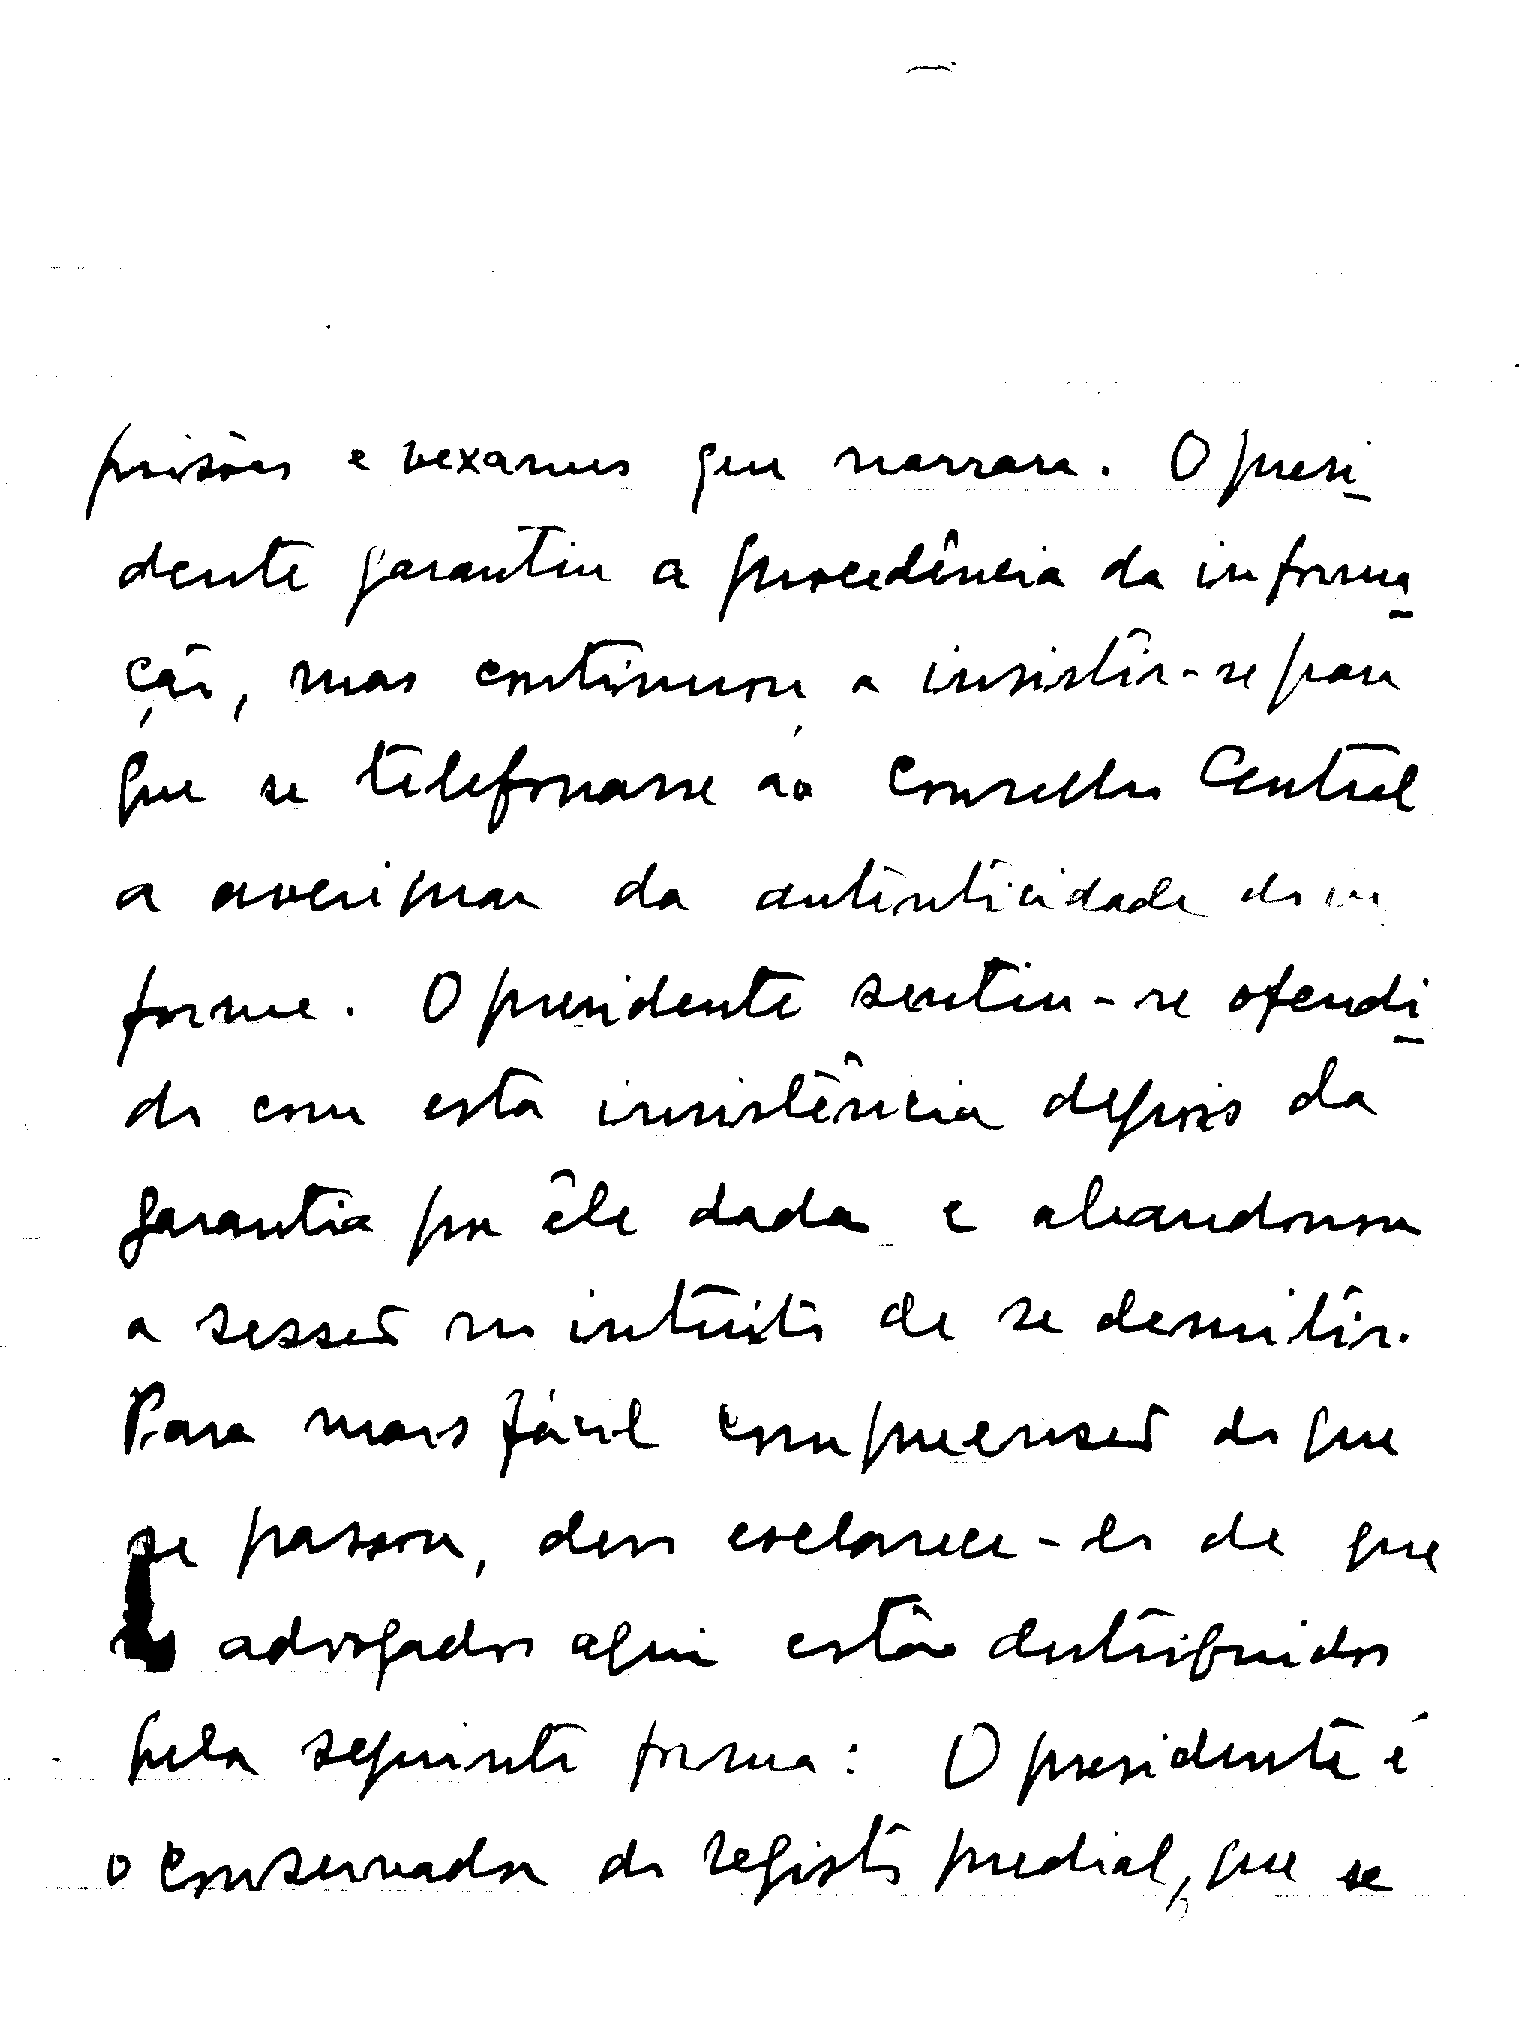 prisões e vexames que narrara. O presi-
dente garantiu a procedência da informa-
ção, mas continuou a insistir-se para
que se telefonasse ao Conselho Central
a averiguar da autenticidade do in
forme. O presidente sentiu-se ofendi-
do com esta insistência depois da
garantia por êle dada e abandonou
a sessão no intuito de se demitir.
Para mais fácil compreensão do que
se passou, devo esclarece-lo de que
os advogados aqui estão distribuidos
pela seguinte forma: O presidente é
o conservador do registo predial, que se